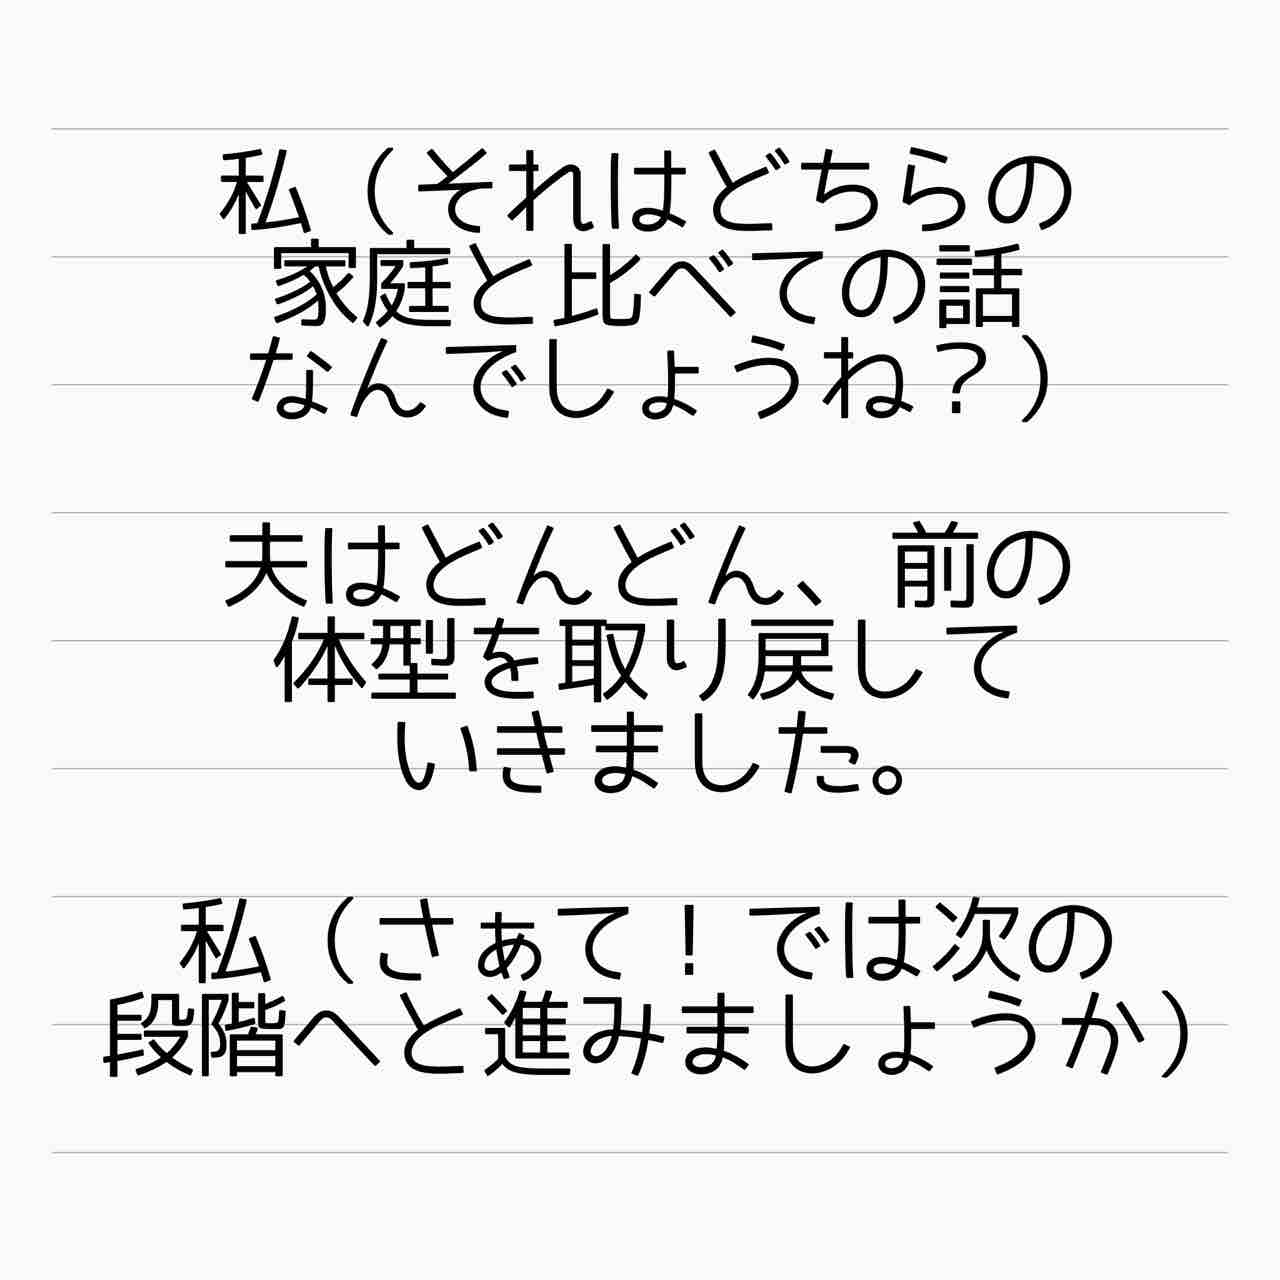 私（それはどちらの
家庭と比べての話
なんでしょうね？）
夫はどんどん、前の
体型を取り戻して
いきました。
私（さぁて！では次の
段階へと進みましょうか）